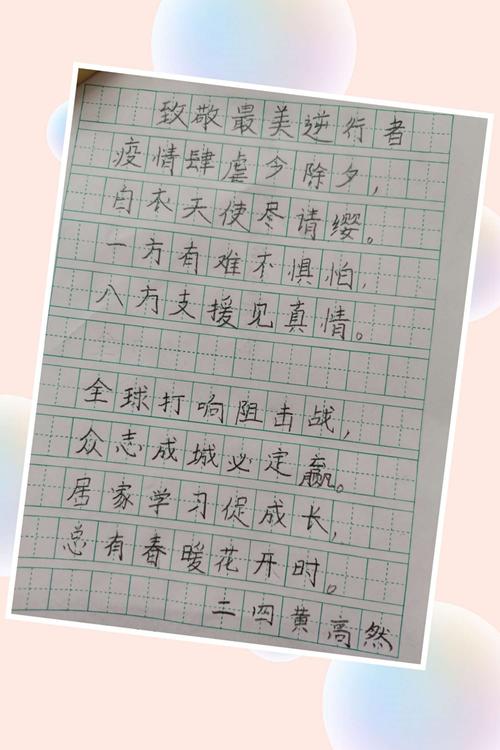 致敬最美逆行者
疫情肆虐今除夕,
白衣天使尽请缨。
一方有难不惧怕,
八方支援见真情。
全球打响阻击战,
众志成城必定赢。
居家学习促成长,
总有春暖花开时。
二四黄高然